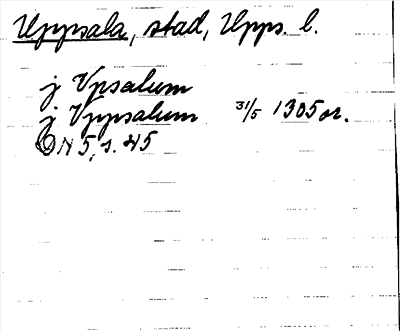 Uppsala, stad, Upps. l.
j Vpsalum
j Vppsalum 31/5 1305 or.
DN 5, s. 45